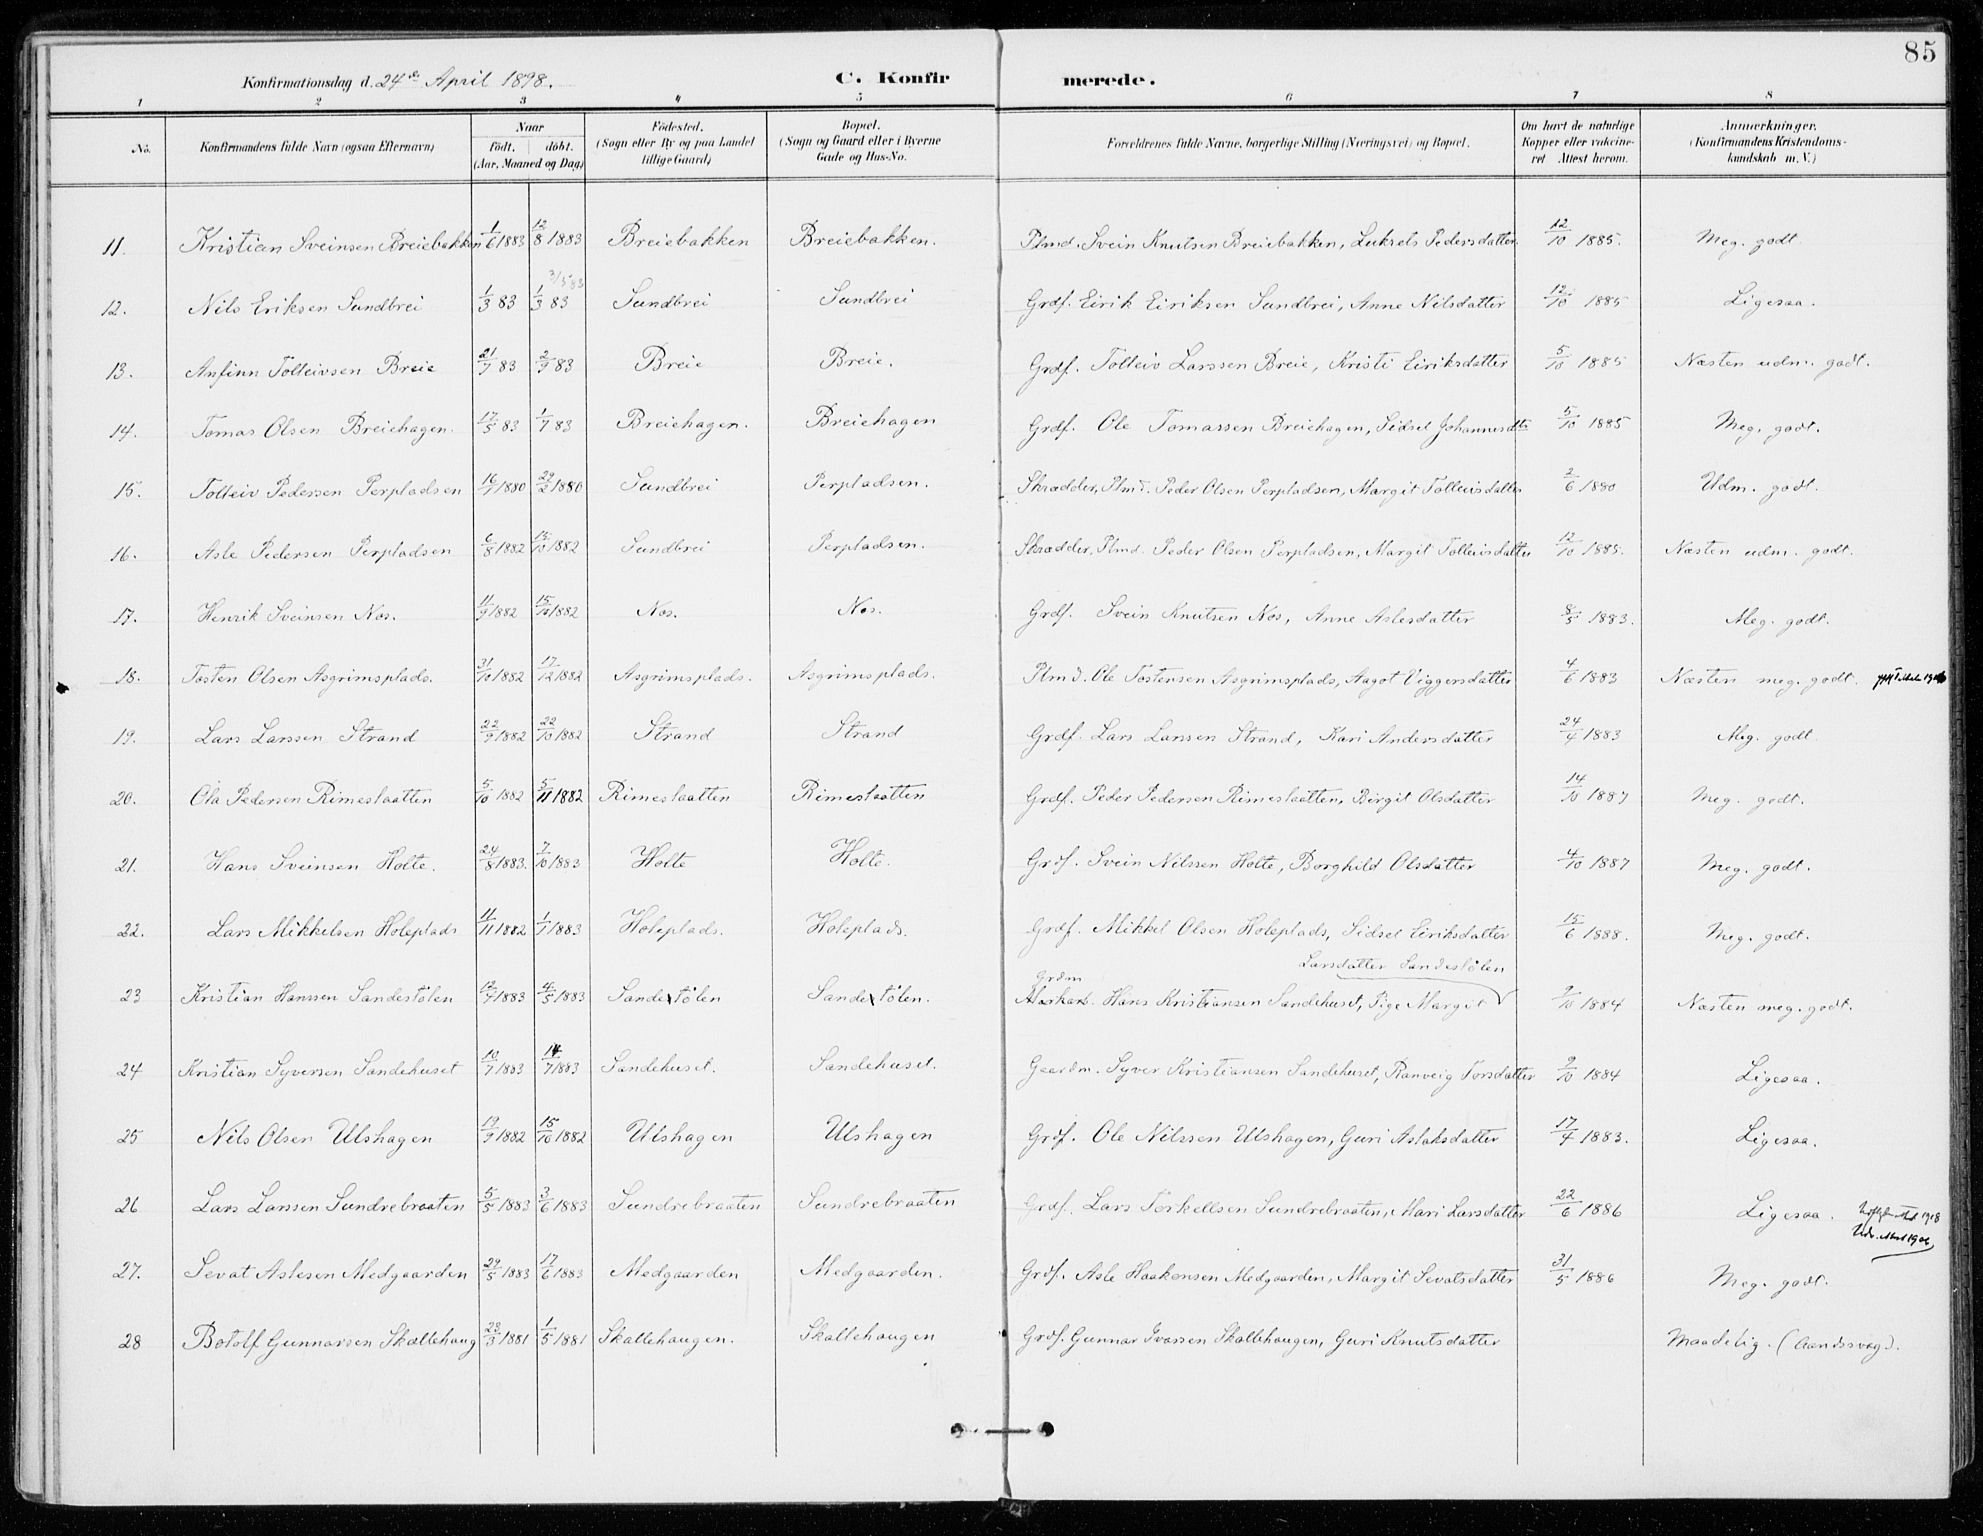 85
Konfirmationsdag d. 24de April 1898.
C. Konfirmerede.
1 2 3 4 5 6 7 8
No. | Konfirmandens fulde Navn (ogsaa Efternavn) | Naar født. døbt. (Aar, Maaned og Dag) | Fødested. (Sogn eller By og paa Landet tillige Gaard) | Bopæl. (Sogn og Gaard eller i Byerne Gade og Hus-No. | Forældrenes fulde Navne, borgerlige Stilling (Næringsvei) og Bopæl. | Om havt de naturlige Kopper eller vakcineret Attest herom. | Anmærkninger. (Konfirmandens Kristendomskundskab m. V.)
11. Kristian Sveinsen Breiebakken 1/6 1883 12/8 1883 Breiebakken Breiebakken. Plmd. Svein Knutsen Breiebakken, Lukrets Pedersdatter 12/10 1885. Meg. godt.
3/5 83
12. Nils Eriksen Sundbrei 1/3 83 1/3 83 Sundbrei Sundbrei Grdf. Eirik Eiriksen Sundbrei, Anne Nilsdatter 12/10 1885 Ligesaa.
13. Anfinn Tolleivsen Breie 21/7 83 2/9 83 Breie Breie. Grdf. Tolleiv Larssen Breie, Kristi Eiriksdatter 5/10 1885 Næsten udm. godt.
14. Tomas Olsen Breiehagen. 17/5 83 1/7 83 Breiehagen. Breiehagen Grdf. Ole Tomassen Breiehagen, Sidsel Johannesdtr 5/10 1885 Meg. godt.
15. Tolleiv Pedersen Perpladsen 16/1 1880 29/2 1880 Sundbrei Perpladsen. Skrædder, Plmd. Peder Olsen Perpladsen, Margit Tolleivsdatter 2/6 1880 Udm. godt.
16. Asle Pedersen Perpladsen 6/8 1882 15/10 1882 Sundbrei Perpladsen. Skrædder, Plmd. Peder Olsen Perpladsen, Margit Tolleivsdatter 12/10 1885. Næsten udm. godt.
17. Henrik Sveinsen Nos. 11/9 1882 15/10 1882 Nos. Nos. Grdf. Svein Knutsen Nos, Anne Aslesdatter 8/5 1883. Meg. godt.
18. Tosten Olsen Asgrimsplads. 31/10 1882 17/12 1882 Asgrimsplads. Asgrimsplads. Plmd. Ole Tostensen Asgrimsplads, Aagot Viggersdatter 4/6 1883 Næsten meg. godt.
19. Lars Larssen Strand 22/9 1882 22/10 1882 Strand Strand Grdf. Lars Larssen Strand, Kari Andersdatter 24/4 1883 Meg. godt
20. Ola Pedersen Rimeslaatten 5/10 1882 5/11 1882 Rimeslaatten Rimeslaatten Grdf. Peder Pedersen Rimeslaatten, Birgit Olsdatter 14/10 1887 Meg. godt.
21. Hans Sveinsen Holte. 24/8 1883. 7/10 1883 Holte Holte. Grdf. Svein Nilssen Holte, Borghild Olsdatter 4/10 1887 Meg. godt.
22. Lars Mikkelsen Holeplads 11/11 1882 1/1 1883 Holeplads. Holeplads. Grdf. Mikkel Olsen Holeplads, Sidsel Eiriksdatter 15/6 1888. Meg. godt.
Larsdatter Sandestølen
Grdm
23 Kristian Hanssen Sandestølen 1883 4/5 1883 Sandestølen Sandestølen. Hans Kristiansen Sandehuset, Pige Margit 9/10 1884 Næsten meg. godt.
24 Kristian Syversen Sandehuset 10/7 1883 1883 Sandehuset. Sandehuset. Gaardm. Syver Kristiansen Sandehuset, Ranveig Torsdatter 9/10 1884 Ligesaa.
25 Nils Olsen Ulshagen 19/9 1882 15/10 1882 Ulshagen Ulshagen Grdf. Ole Nilssen Ulshagen, Guri Aslaksdatter 17/4 1883. Ligesaa.
26 Lars Larssen Sundrebraaten 5/5 1883 3/6 1883 Sundrebraaten Sundrebraaten Grdf. Lars Torkellsen Sundrebraaten, Mari Larsdatter 22/6 1886 Ligesaa. 1918
27. Sevat Aslesen Medgaarden 29/5 1883 17/6 1883 Medgaarden Medgaarden. Grdf. Asle Haakonsen Medgaarden, Margit Sevatsdatter 31/5 1886 Meg. godt.
28 Botolf Gunnarsen Skallehaug 23/3 1881 1/5 1881 Skallehaugen. Skallehaugen Grdf. Gunnar Ivarsen Skallehaugen, Guri Knutsdatter Maadelig. (Aandssvag).